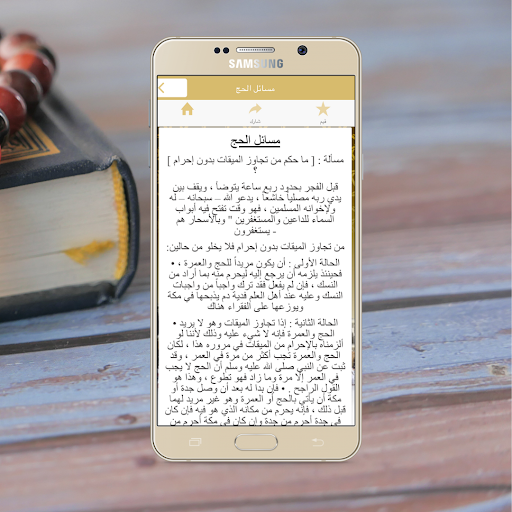 SAMSUNG
مسائل الحج
شارك
قيم
مسائل الحج
مسألة : [ ما حكم من تجاوز الميقات بدون إحرام ]
؟
قبل الفجر بحدود ربع ساعة يتوضأ ، ويقف بين
يدي ربه مصلياً خاشعاً ، يدعو الله – سبحانه – له
ولإخوانه المسلمين ، فهو وقت تفتح فيه أبواب
السماء للداعين والمستغفرين " وبالأسحار هم
يستغفرون -
من تجاوز الميقات بدون إحرام فلا يخلو من حالين:
• الحالة الأولى : أن يكون مريداً للحج والعمرة ،
فحينئذ يلزمه أن يرجع إليه ليحرم منه بما أراد من
النسك ، فإن لم يفعل فقد ترك واجباً من واجبات
النسك ، وعليه عند أهل العلم فدية دم يذبحها في مكة
ويوزعها على الفقراء هناك
• الحالة الثانية : إذا تجاوز الميقات وهو لا يريد
الحج والعمرة فإنه لا شيء عليه وذلك لأننا لو
ألزمناه بالإحرام من الميقات في مروره هذا ، لكان
الحج والعمرة تجب أكثر من مرة في العمر ، وقد
ثبت عن النبي صلى الله عليه وسلم أن الحج لا يجب
في العمر إلا مرة وما زاد فهو تطوع ، وهذا هو
القول الراجح . • فإن بدا له بعد أن وصل جدة أو
مكة أن يأتي بالحج أو العمرة وهو غير مريد لهما
قبل ذلك ، فإنه يحرم من مكانه الذي هو فيه فإن كان
في جدة أحرم من جدة وإن كان في مكة أحرم من